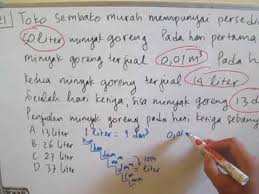 21) Toko sembako murah mempunyai persedi
50 liter minyak goreng Pada hari pertama
minyak goreng terjual 0,01 m³ Pada h
kedua minyak goreng terjual 14 liter
Setelah hari ketiga, sisa minyak goreng 13 d
Penjualan minyak goreng pada hari ketiga seban
A. 13 liter 1 liter = 1 dm³ 0,01
B. 26 liter km
C. 27 liter hm
D. 37 liter